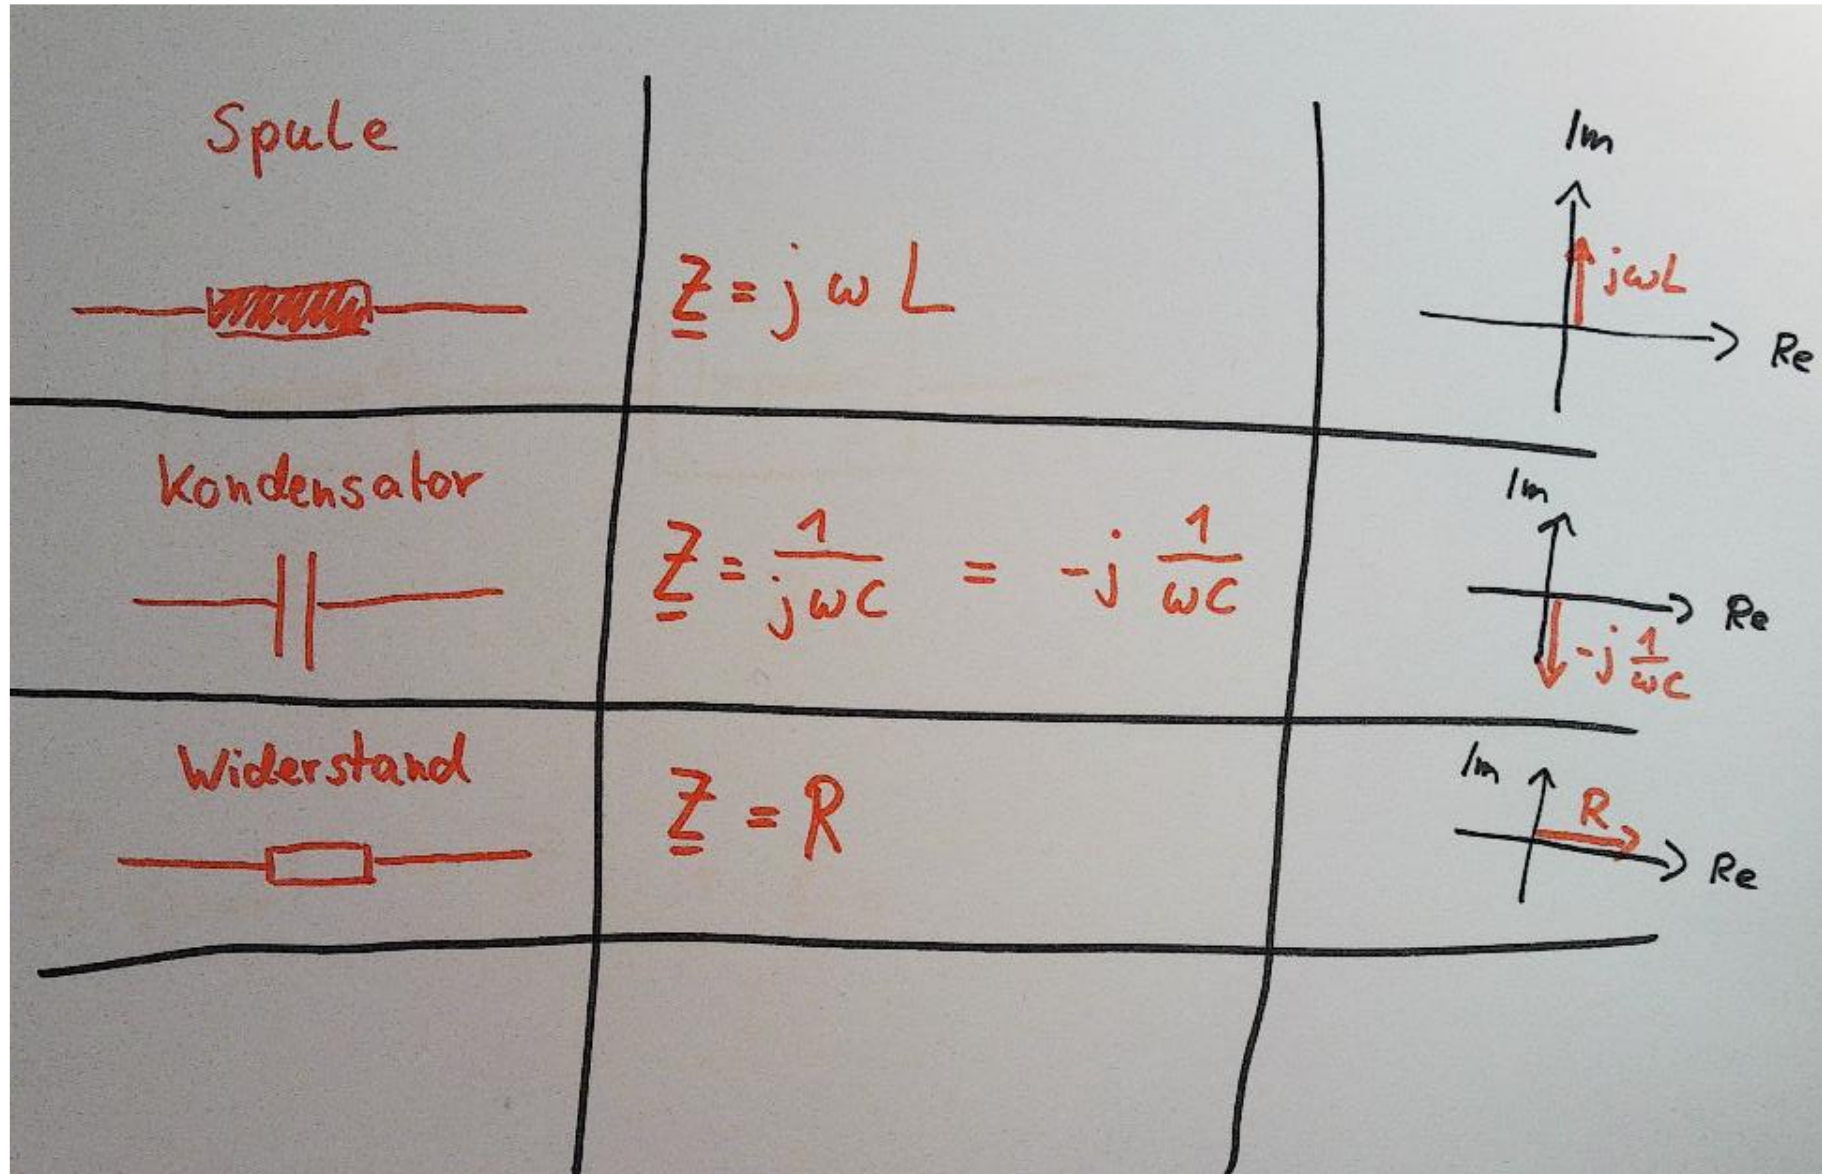 Spule
Z = jωL
Im
jωL
Re
Kondensator
Z = 1/(jωC) = -j 1/(ωC)
Im
Re
-j 1/(ωC)
Widerstand
Z = R
Im
R
Re